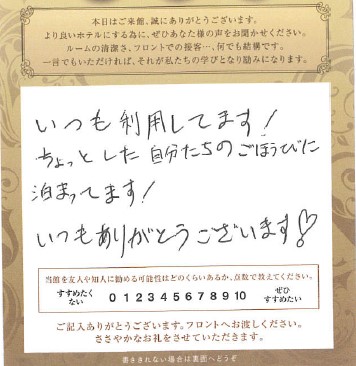 本日はご来館、誠にありがとうございます。
より良いホテルにする為に、ぜひあなた様の声をお聞かせください。
ルームの清潔さ、フロントでの接客…、何でも結構です。
一言でもいただければ、それが私たちの学びとなり励みになります。
いつも利用してます!
ちょっとした自分たちのごほうびに
泊まってます!
いつもありがとうございます♡
当館を友人や知人に勧める可能性はどのくらいあるか、点数で教えてください。
すすめたく
ない
0 1 2 3 4 5 6 7 8 9 10
ぜひ
すすめたい
ご記入ありがとうございます。フロントへお渡しください。
ささやかなお礼をさせていただきます。
書ききれない場合は裏面へどうぞ